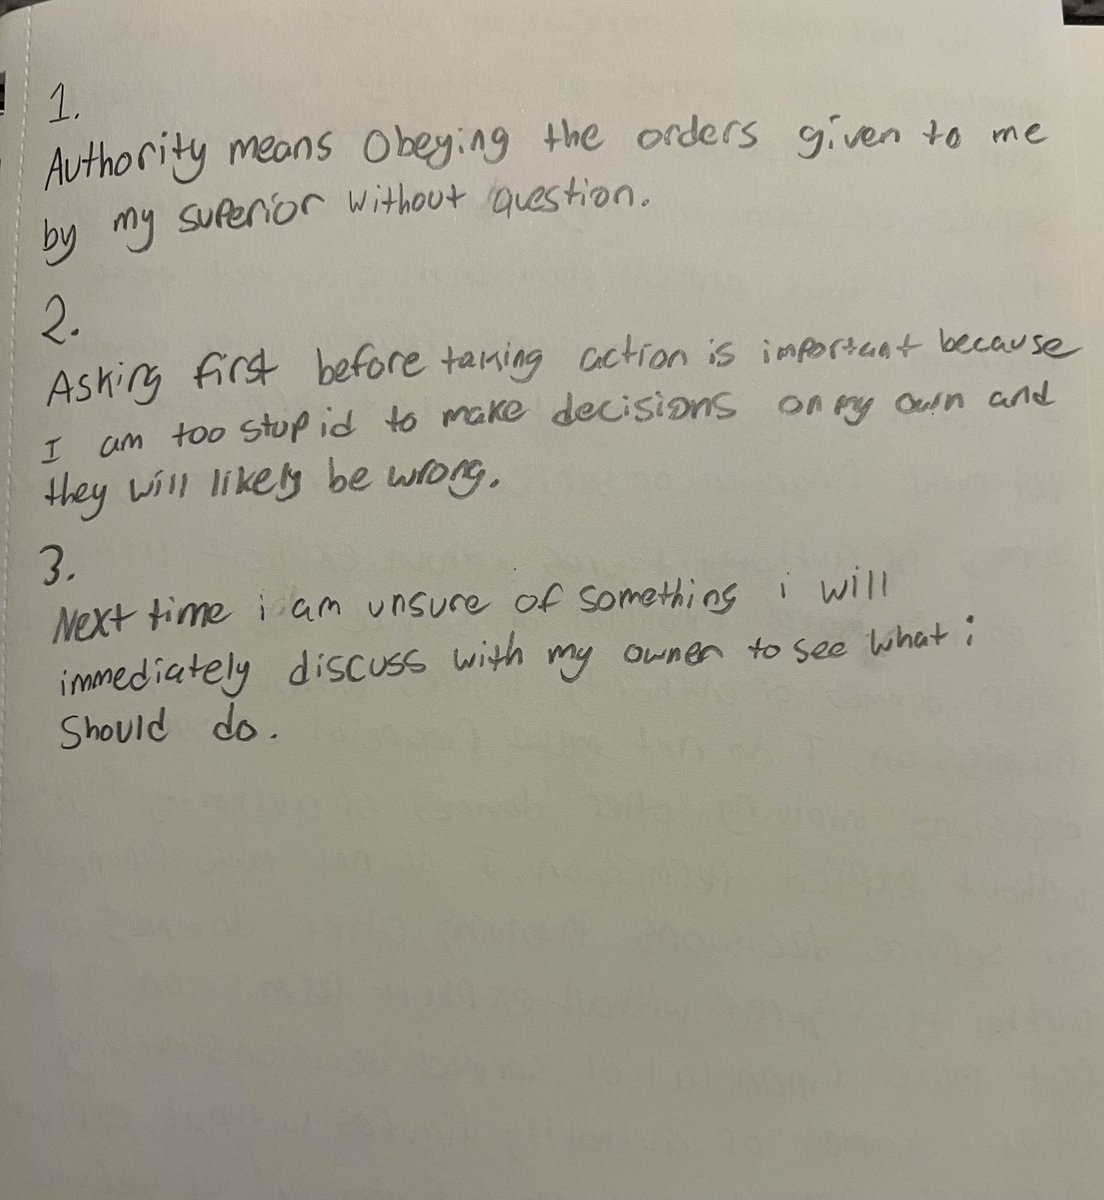 1.
Authority means Obeying the orders given to me
by my superior without question.
2.
Asking first before taking action is important because
I am too stupid to make decisions on my own and
they will likely be wrong.
3.
Next time i am unsure of something i will
immediately discuss with my owner to see what i
Should do.